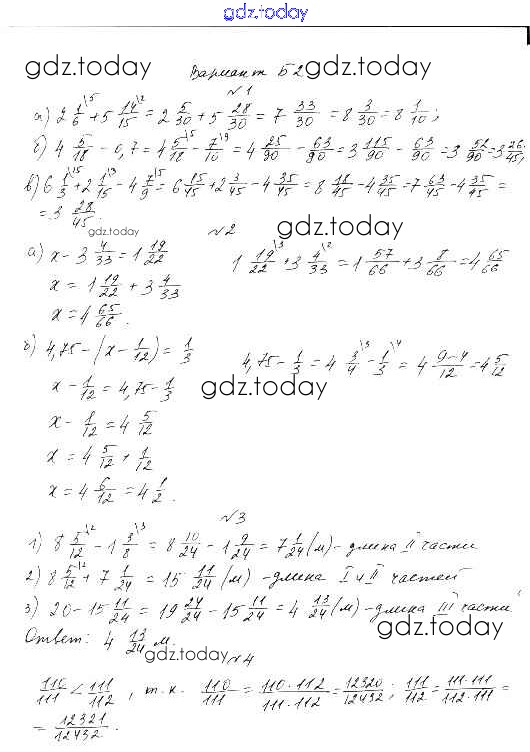 gdz.today
gdz.today
gdz.today
Вариант Б2
№1
а) 2 1/6\5 + 5 14/15\2 = 2 5/30 + 5 28/30 = 7 33/30 = 8 3/30 = 8 1/10;
б) 4 5/18 - 0,7 = 4 5/18\5 - 7/10\9 = 4 25/90 - 63/90 = 3 115/90 - 63/90 = 3 52/90 = 3 26/45;
в) 6 1/3\15 + 2 1/15\3 - 4 7/9\5 = 6 15/45 + 2 3/45 - 4 35/45 = 8 18/45 - 4 35/45 = 7 63/45 - 4 35/45 =
= 3 28/45.
gdz.today
№2
gdz.today
а) x - 3 4/33 = 1 19/22
1 19/22\3 + 3 4/33\2 = 1 57/66 + 3 8/66 = 4 65/66
x = 1 19/22 + 3 4/33
x = 4 65/66.
б) 4,75 - (x - 1/12) = 1/3
4,75 - 1/3 = 4 3/4\3 - 1/3\4 = 4 9-4/12 = 4 5/12
x - 1/12 = 4,75 - 1/3
gdz.today
x - 1/12 = 4 5/12
x = 4 5/12 + 1/12
x = 4 6/12 = 4 1/2.
№3
1) 8 5/12\2 - 1 3/8\3 = 8 10/24 - 1 9/24 = 7 1/24 (м) - длина II части
2) 8 5/12\2 + 7 1/24 = 15 11/24 (м) - длина I и II частей
3) 20 - 15 11/24 = 19 24/24 - 15 11/24 = 4 13/24 (м) - длина III части
Ответ: 4 13/24 м.
gdz.today
gdz.today
№4
110/111 < 111/112, т.к. 110/111 = 110·112/111·112 = 12320/12432; 111/112 = 111·111/112·111 =
= 12321/12432.